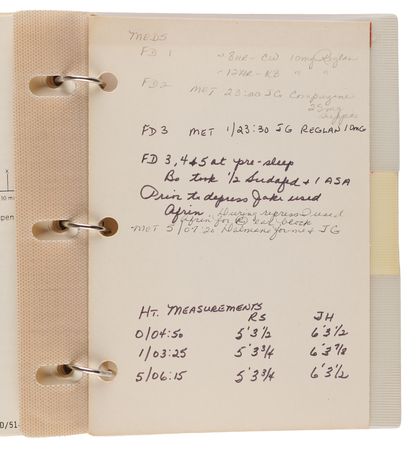 MEDS
FD 1 → 8HR - CW 10mg Reglan
→ 12HR - KB " "
FD 2 MET 23:00 JG Compazine
25mg
FD 3 MET 1/23:30 JG REGLAN 10MG
FD 3, 4 & 5 at pre-sleep
Bo took 1/2 Sudafed & 1 ASA
Prior to depress Jake used
Afrin. During repress I used
afrin for R ear block
MET 5/07:20 Dalmane for me & JG
HT. MEASUREMENTS
RS JH
0/04:50 5'3 1/2 6'3 1/2
1/03:25 5'3 3/4 6'3 7/8
5/06:15 5'3 3/4 6'3 1/2
10 m
pen
D/51-